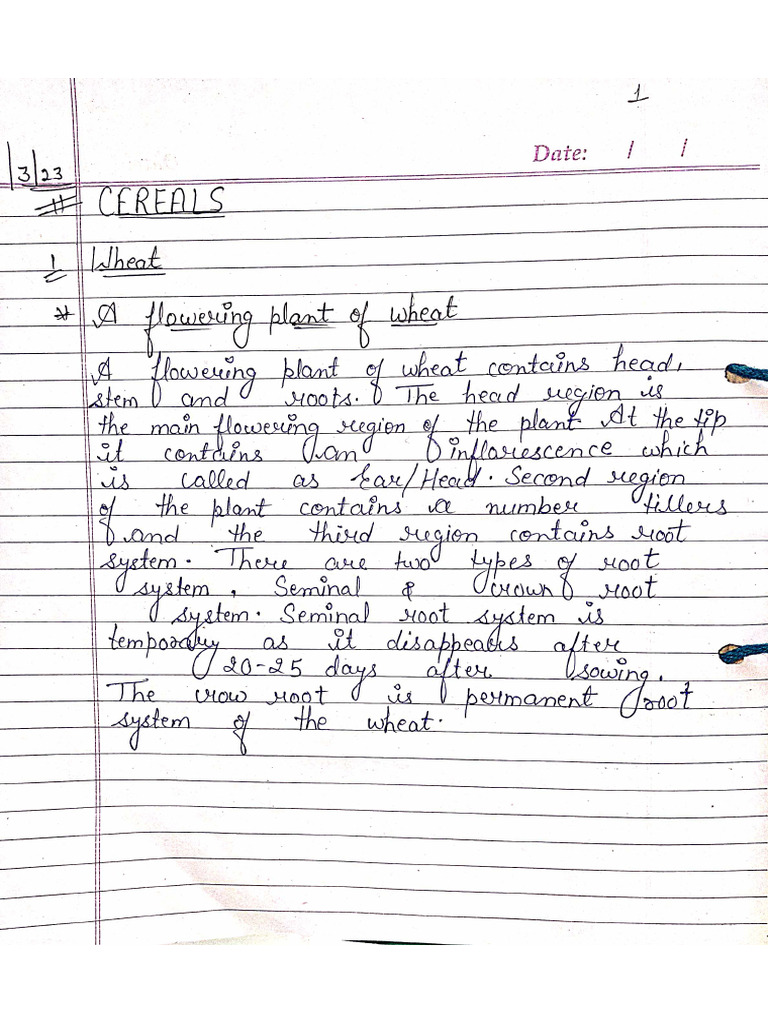 1
Date: / /
|3|23
# CEREALS
1 Wheat
* A flowering plant of wheat
A flowering plant of wheat contains head,
stem and roots. The head region is
the main flowering region of the plant At the tip
it contains an inflorescence which
is called as Ear/Head. Second region
of the plant contains a number tillers
and the third region contains root
system. There are two types of root
system, Seminal & crown root
system. Seminal root system is
temporary as it disappears after
20-25 days after sowing.
The crow root is permanent root
system of the wheat.